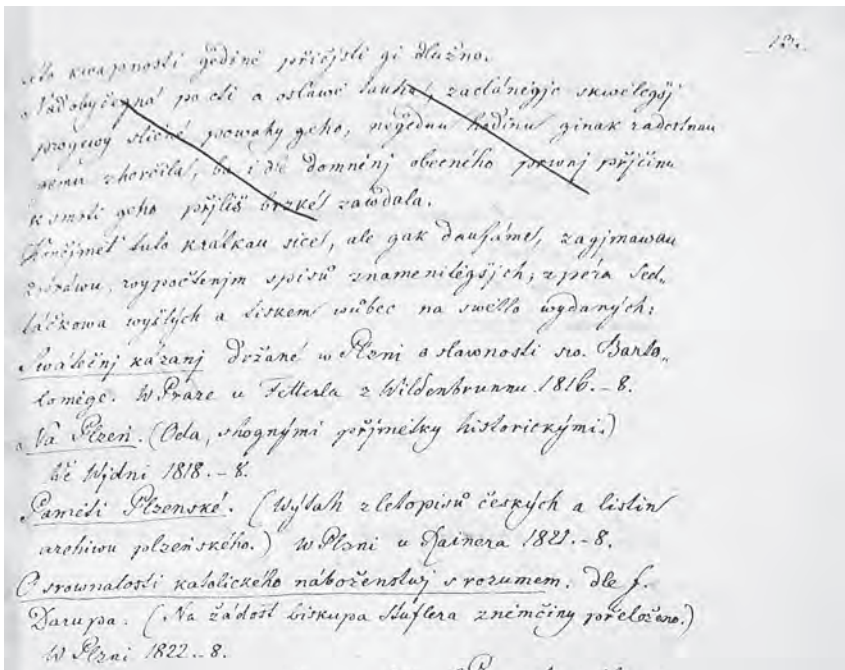 12.
kwapnosti gedině přičjsti gi dlužno.
Nad obyčegná po cti a oslawě tauha, zacláněgjc skwělegšj
progewy sličné powahy geho, negednu hodinu ginak radostnau
gemu zhorčila, ba i dle domněnj obecného prwnj přjčinu
k smrti geho přjliš brzké zawdala.
Končjmeť tuto krátkau sice, ale gak daufáme, zagjmawau
zpráwu, wypočtenjm spisů znamenitěgšjch, z péra Sed„
láčkowa wyšlých a tiskem wůbec na swětlo wydaných:
Swátečnj kázanj držané w Plzni o slawnosti sw. Barto„
loměge. W Praze u Fetterla z Wildenbrunnu 1816. – 8.
Na Plzeň. (Oda, s hognými přjmětky historickými.)
We Wjdni 1818. – 8.
Paměti Plzenské. (Wýtah z letopisů českých a listin
archiwu plzeňského.) W Plzni u Rainera 1821. – 8.
O srownalosti katolického náboženstwj s rozumem. dle f.
Darupa. (Na žádost biskupa Hurdálka z němčiny přeloženo.)
W Plzni 1822. – 8.